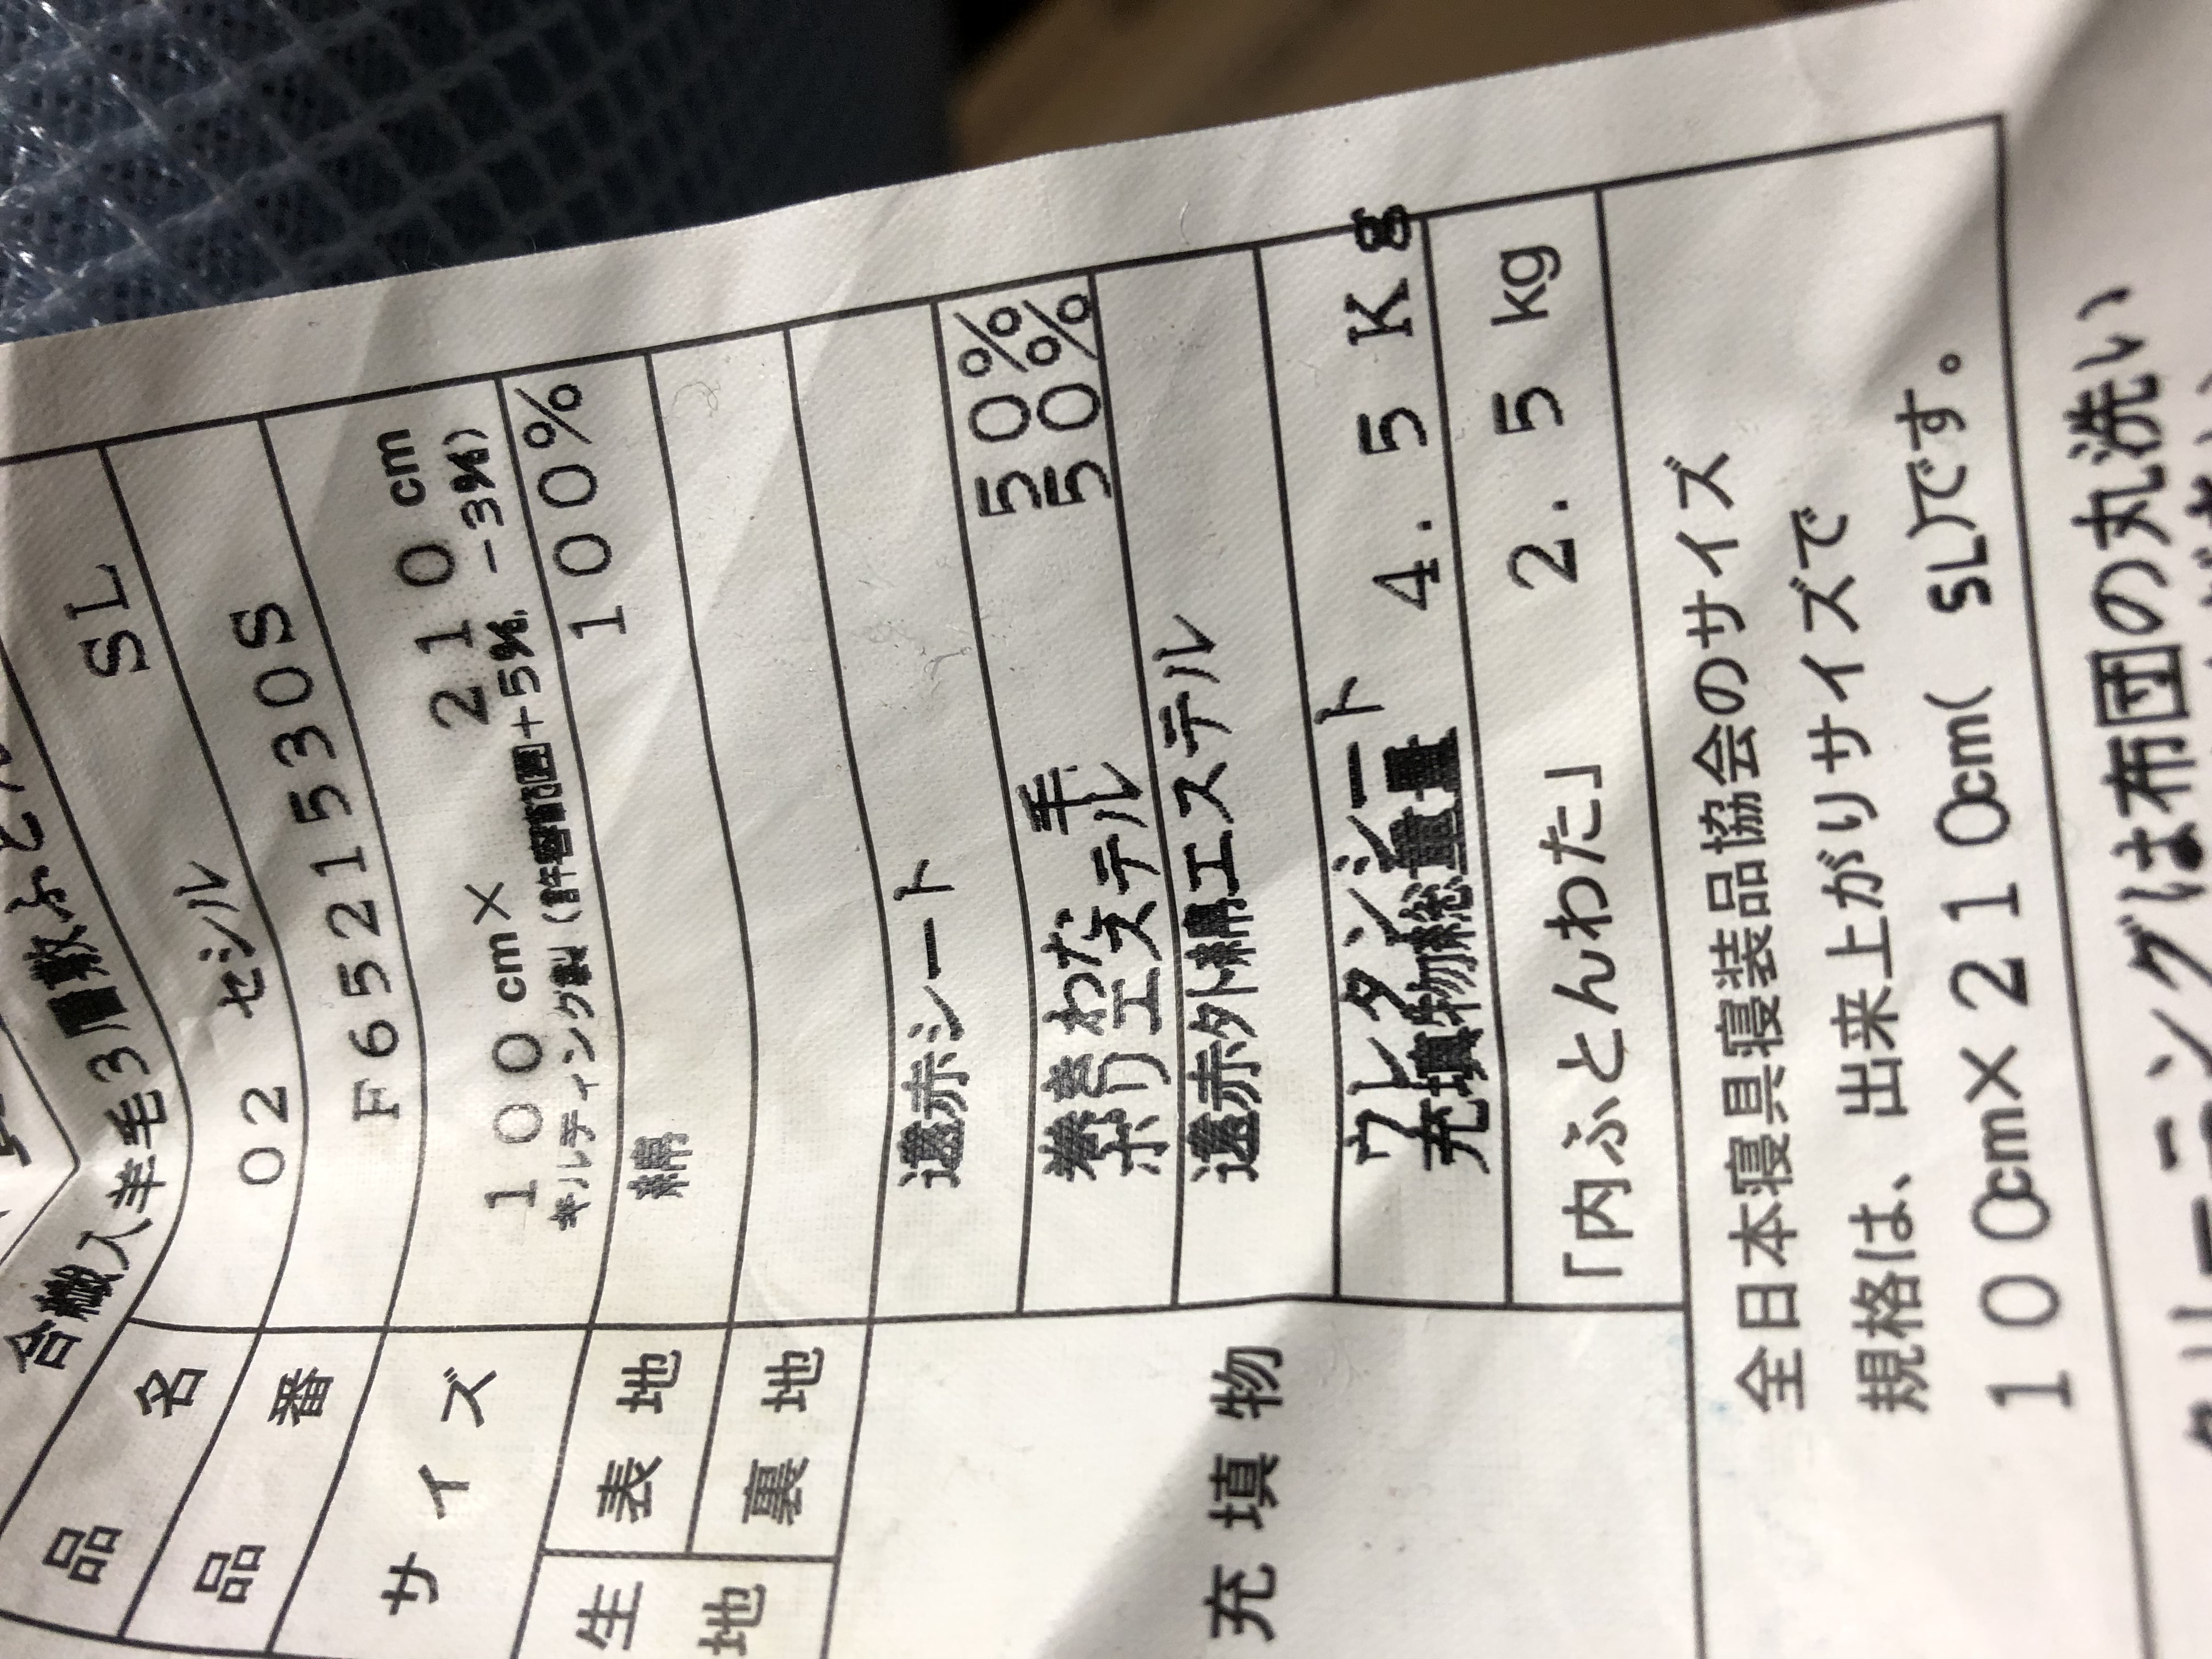 合繊入羊毛3層敷ふとん
SL
品名
02 セシル
品番
F6521530S
サイズ
100cm×210cm
キルティング製(許容範囲+5%. -3%)
生地
表地
綿 100%
裏地
充填物
遠赤シート
巻わた 羊毛 50%
ポリエステル 50%
遠赤外綿エステル
ウレタンシート
充填物総重量 4.5Kg
「内ふとんわた」 2.5kg
全日本寝具寝装品協会のサイズ
規格は、出来上がりサイズで
100cm×210cm( SL)です。
クリーニングは布団の丸洗い